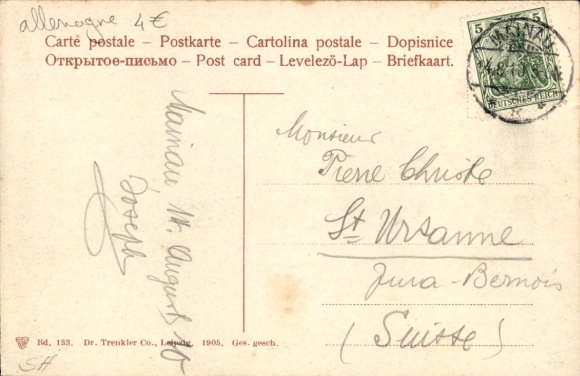 allemagne 4€
Carte postale – Postkarte – Cartolina postale – Dopisnice
Открытое-письмо – Post card – Levelező-Lap – Briefkaart.
5 5
MAINAU
DEUTSCHES REICH
Mainau 14. August 10
Joseph
Monsieur
Pierre Christe
St Ursanne
Jura-Bernois
(Suisse)
Bd. 133. Dr. Trenkler Co., Leipzig. 1905. Ges. gesch.
SH